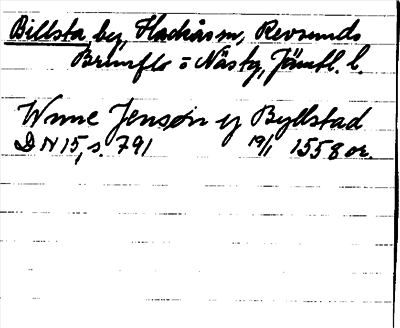 Billsta by, Hackås sn, Revsunds
Brunflo o Näs tg, Jämtl. l.
Wnne Jensøn y Byllstad
DN 15, s. 791 19/1 1558 or.